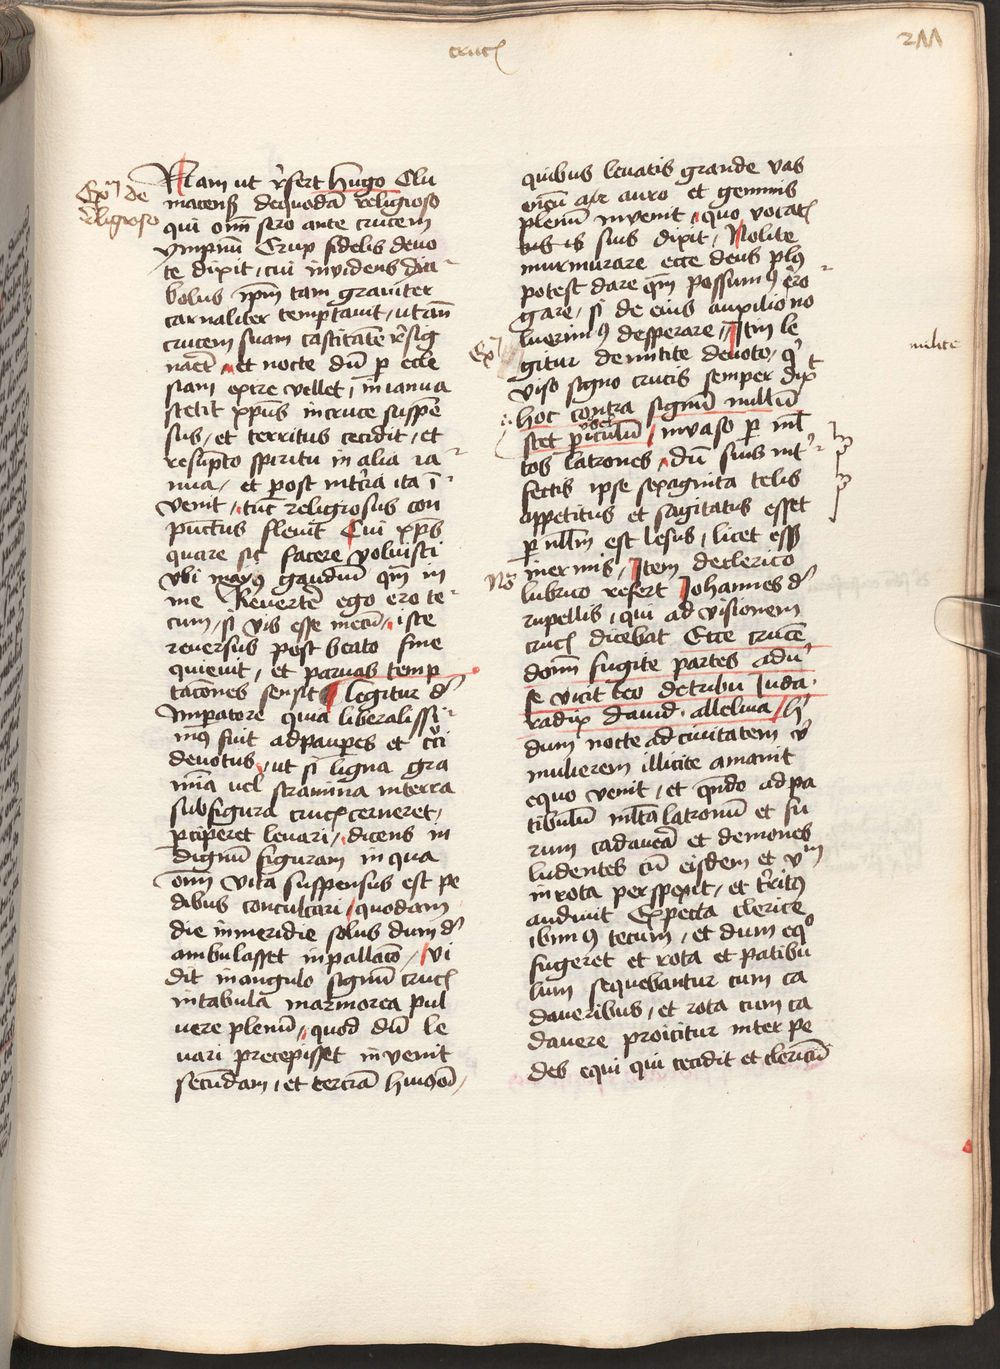 crucꝭ
Exm̄ de
religioso
Nam ut r̄fert hugo Clu
niacensꝭ dequodā religioso
qui om̄i sero ante crucem
ympnū Crux fidelis devo
te dixit, cui invidens dia
bolus ip̄m tam graviter
carnaliter temptavit, ut tan̄
crucem suam castitatē r̄sig
naēt, et nocte dū ꝑ eccle
siam exire vellet, in ianua
stetit xp̄us in cruce suspen̄
sus, et territus cecidit, et
resūpto spiritu in alia ia
nua, et post in tercia ita ī
venit, tūc religiosus con
punctus flevit Cui xp̄s
quare sic facere voluisti
Vbi maius gaudiū qm̄ in
me Revertē ego ero te
cum, si vis esse mecū, iste
reversus post beato fine
quievit, et parvas temp
tacōnes sensit legitur d̓
Imperatore quia liberalissi
mꝰ fuit ad pauꝑes et c̄ci
devotus, ut si ligna gra
mīa uel stramina in terra
sub figura crucꝭ cerneret,
p̄ciperet levari, dicens in
dignū figuram in qua
om̄i vita suspensus est pe
dibus conculcari, quodam
die in meridie solus dum d̓
ambulasset in pallacō, vi
dit in angulo signū crucꝭ
in tabula marmorea pul
vere plenū, quod dū le
vari precepisset invenit
secūdam, et terciā huiōi,
quibus levatis grande vas
auro et gemmis
plenū invenit, quo vocatꝭ
is suis dixit, Nolite
murmurare ecce deus plꝰ
potest dare qm̄ possumꝰ ero
gare, si de eius auxilio no
luerimꝰ desperare, Itm̄ le
Exm̄
gitur de milite devoto, qͥ
milite
viso signo crucis semper dix̄t
hoc contra signū nullū
stet ꝑiculū, invaso ꝑ ml̄
tos latrones, dū suis int̓
fectis ipse sexaginta telis
appetitus et sagitatus esset
ꝑ nll̄m est lesus, licet essꝫ
inermis, Item de clerico
No
lubrico refert Johannes d̓
rupellis, qui ad visionem
crucꝭ dicebat Ecce crucē
domī fugite partes adū
se vicit leo de tribu Juda
radix david alleluia, h̓
dum nocte ad civitatem v̓
mulierem illicite amavit
equo venit, et qn̄do ad pa
tibulū ml̄ta latronū et fu
rum cadavera et demones
ludentes cū eisdem et vm̄
in rota perspexit, et t̓ritꝰ
audivit Expecta clerice
ibimꝰ tecum, et dum eqͦ
fugeret et rota et patibu
lum sequebantur cum ca
daveribus, et rota cum ca
davere proicitur inter pe
des equi qui cecidit et clericū